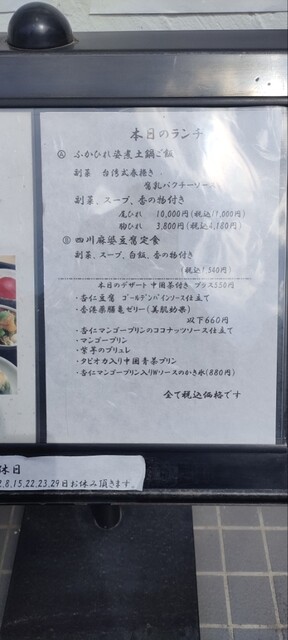 本日のランチ
Ⓐ ふかひれ姿煮土鍋ご飯
副菜 台湾式春捲き
腐乳パクチーソース
副菜、スープ、香の物付き
尾びれ 10,000円(税込11,000円)
胸びれ 3,800円(税込4,180円)
Ⓑ 四川麻婆豆腐定食
副菜、スープ、白飯、香の物付き
(税込1,540円)
本日のデザート 中国茶付き プラス550円
・杏仁豆腐 ゴールデンパインソース仕立て
・香港原膳亀ゼリー(美肌効果)
以下660円
・杏仁マンゴープリンのココナッツソース仕立て
・マンゴープリン
・紫芋のブリュレ
・タピオカ入り中国青茶プリン
・杏仁マンゴープリン入りWソースのかき氷(880円)
全て税込価格です
休日
8,15,22,23,29日お休み頂きます。